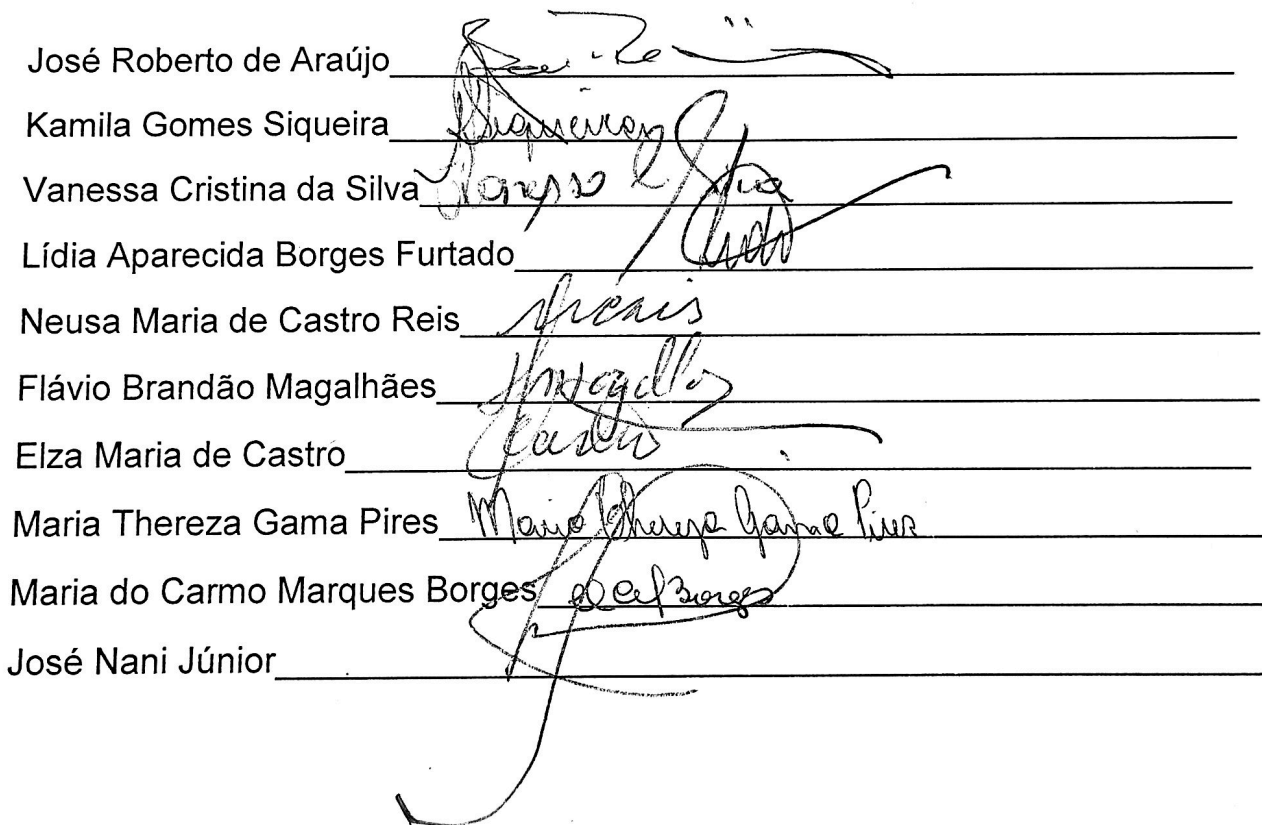 José Roberto de Araújo
Kamila Gomes Siqueira Siqueira
Vanessa Cristina da Silva Vanessa C Silva
Lídia Aparecida Borges Furtado
Neusa Maria de Castro Reis
Flávio Brandão Magalhães
Elza Maria de Castro
Maria Thereza Gama Pires Maria Thereza Gama Pires
Maria do Carmo Marques Borges Borges
José Nani Júnior